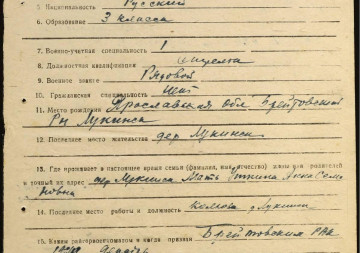 5. Национальность Русский
6. Образование 3 класса
7. Военно-учетная специальность 1
8. Должностная квалификация стрелка
9. Военное звание Рядовой
10. Гражданская специальность нет
11. Место рождения Ярославская обл Брейтовский
Р-н Лукинск
12. Последнее место жительства дер Лукинск
13. Где проживает в настоящее время семья (фамилия, имя, отчество) жены или родителей
и точный их адрес дер Мать Анна Семе
новна
14. Последнее место работы и должность
15. Каким райвоенкоматом и когда призван Брейтовским РВК